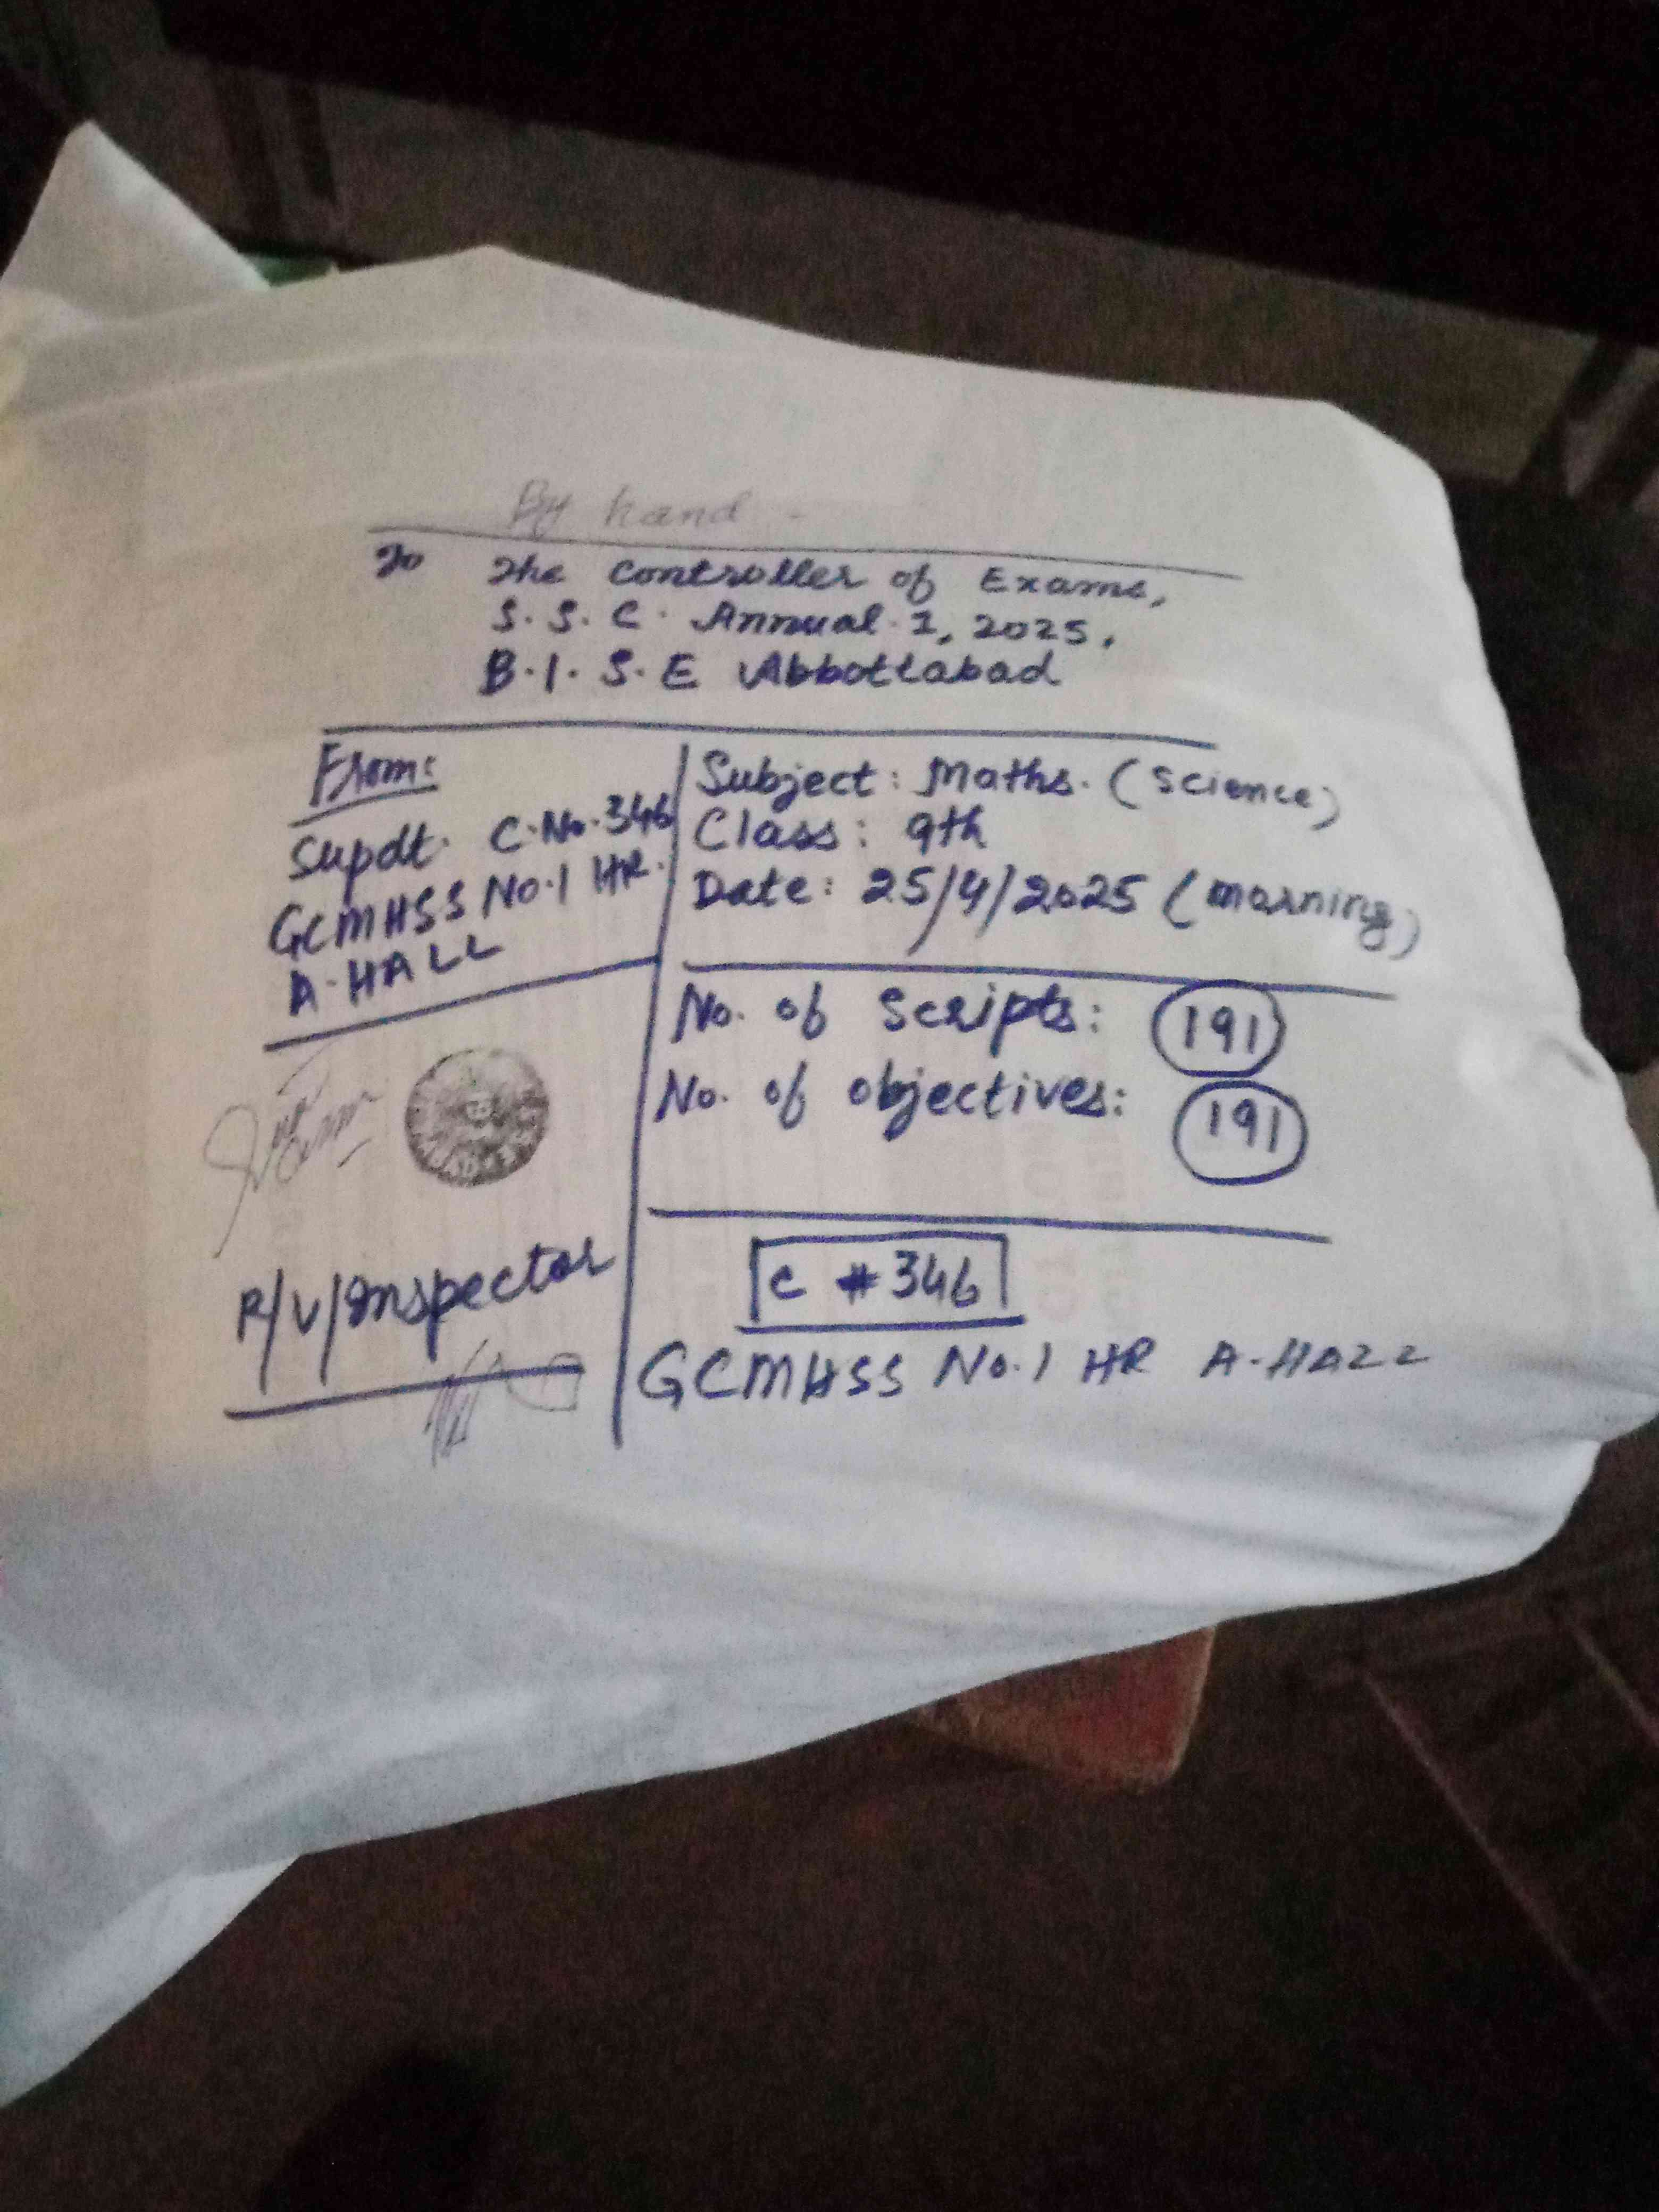 By hand -
To The Controller of Exams,
S.S.C. Annual-1, 2025.
B.I.S.E Abbottabad
From:
Supdt. C.No.346
GCMHSS No.1 HR.
A-HALL
R/V/Inspector
Subject: Maths. (Science)
Class: 9th
Date: 25/4/2025 (morning)
No. of Scripts: 191
No. of objectives: 191
C #346
GCMHSS No.1 HR A-HALL